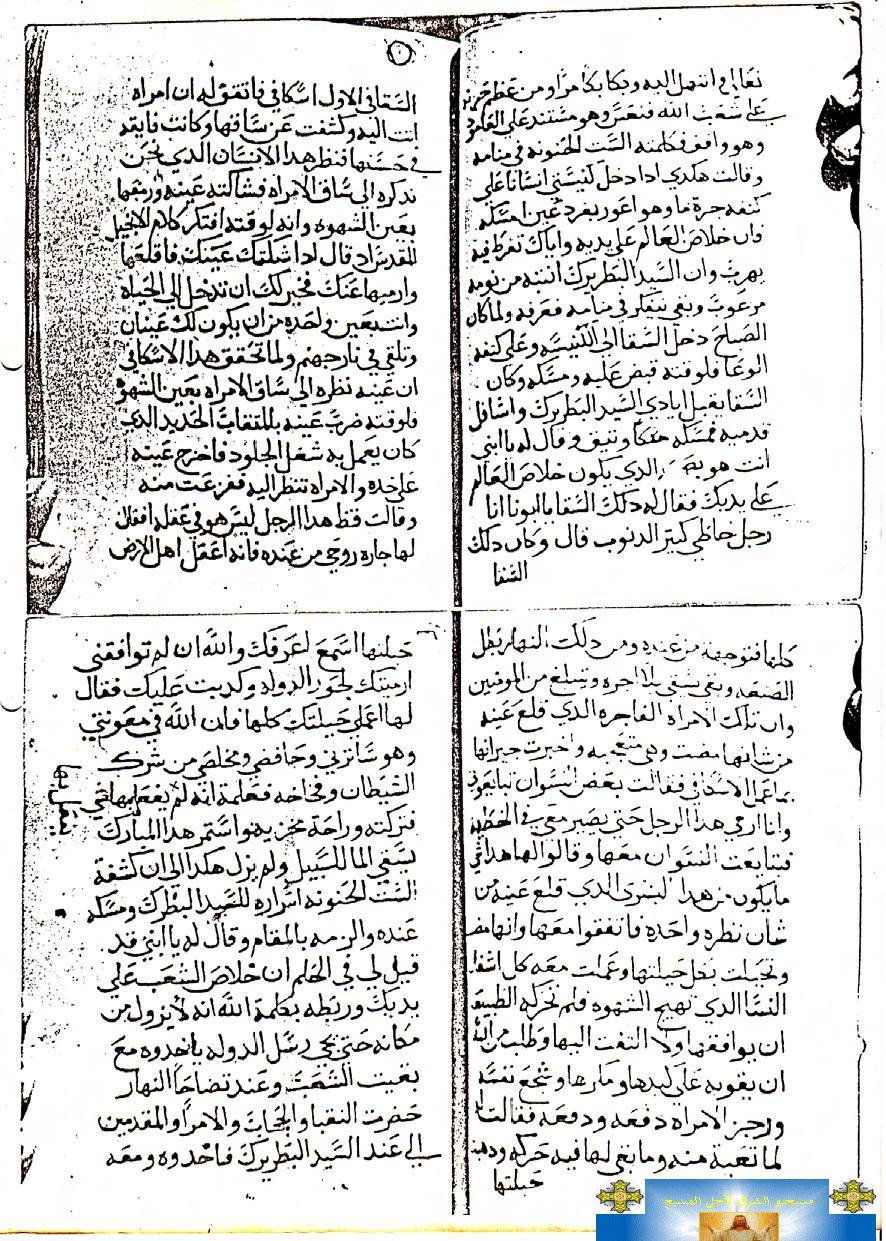 تعالي وابتهل اليه وبكا بكا مرا ومن عظم حزنه
على شعب الله فنعس وهو مستند على العامود
وهو واقف فكلمته الست الحنونه في منامه
وقالت هكدي ادا دخل كنيستي انسانا على
كتفه جرة ما وهو اعور بفرد عين امسكه
فان خلاص العالم على يديه واياك تفرط فيه
يهرب وان السيد البطريرك انتبه من نومه
مرعوب وبقي يتفكر في منامه فعرفه ولما كان
الصباح دخل السقا الى الكنيسه وعلى كتفه
الوعا فلوقته قبض عليه ومسكه وكان
السقا يقبل ايادي السيد البطريرك واسافل
قدميه فمسكه متكا وتيق وقال له يا ابني
انت هو الدي يكون خلاص العالم
على يديك فقال له دلك السقا يا ابونا انا
رجل خاطي كتير الدنوب قال وكان دلك
السقا
السقا في الاول اسكافي فاتفق له ان امراه
اتت اليه وكشفت عن ساقها وكانت فايقه
في حسنها فنظر هدا الانسان الدي نحن
ندكره الى ساق الامراه فشاكته عينه ورمقها
بعين الشهوه وانه لوقته افتكر كلام الانجيل
المقدس اد قال ادا شككتك عينك فاقلعها
وارميها عنك فخير لك ان تدخل الى الحياة
وانت بعين واحده من ان يكون لك عينان
وتلقي في نار جهنم ولما تحقق هدا الاسكافي
ان عينه نظره الى ساق الامراه بعين الشهوه
فلوقته ضرب عينه بالمتقاب الحديد الدي
كان يعمل به شغل الجلود فاخرج عينه
على خده والامراه تنظر اليه ففزعت منه
وقالت قط هدا الرجل ليس هو في عقله افقال
لها جاره روحي من عنده فانه اعقل اهل الارض
كلها فتوجهة من عنده ومن دلك النهار بطل
الصنعه وبقي يسقي بلا اجره ويتبلغ من المومنين
وان تلك الامراه الفاجره الدي قلع عينه
من شانها مضت وهي متعجبه واخبرت جيرانها
بما عمل الاسكافي فقالت بعض النسوان تبايعوني
وانا ارمي هدا الرجل حتى يصير معي في الخطيه
فتبايعت النسوان معها وقالوا لها هدا
ما يكون من هدا البشري الدي قلع عينه من
شان نظره واحده فاتفقوا معها وانها
وتحيلت بكل حيلتها وعملت معه كل اشغال
النسا الدي تهيج الشهوه فلم تحركه الطبيعه
ان يوافقها ولا التفت اليها وطلب من الله
ان يقويه على كيدها ومكرها وشجع نفسه
وزجر الامراه دفعه ودفعه فقالت
لما تعبة منه وما بقي لها فيه حركه
حيلتها
حيلتها اسمع لعرفك والله ان لم توافقني
ارميتك لجور الدوله وكدبت عليك فقال
لها اعملي حيلتك كلها فان الله في معونتي
وهو ساترني وحافضي ومخلصي من شرك
الشيطان وفخاخه فعلمة انه لم يفعل
فتركته وراحة محزينه واستمر هدا المبارك
يسقي الما للسبيل ولم يزل هكدا الى ان كشفة
الست الحنونه اسراره للسيد البطرك ومسكه
عنده والزمه بالمقام وقال له يا ابني قد
قيل لي في الحلم ان خلاص الشعب على
يديك وربطه بكلمة الله انه لا يزول من
مكانه حتى يجي رسل الدوله ياخدوه مع
بقيت الشعب وعند تضاحا النهار
حضرت النقبا والحجاب والامرا والمقدمين
الى عند السيد البطريرك فاخدوه ومعه
مسيحيو الشرق لأجل المسيح